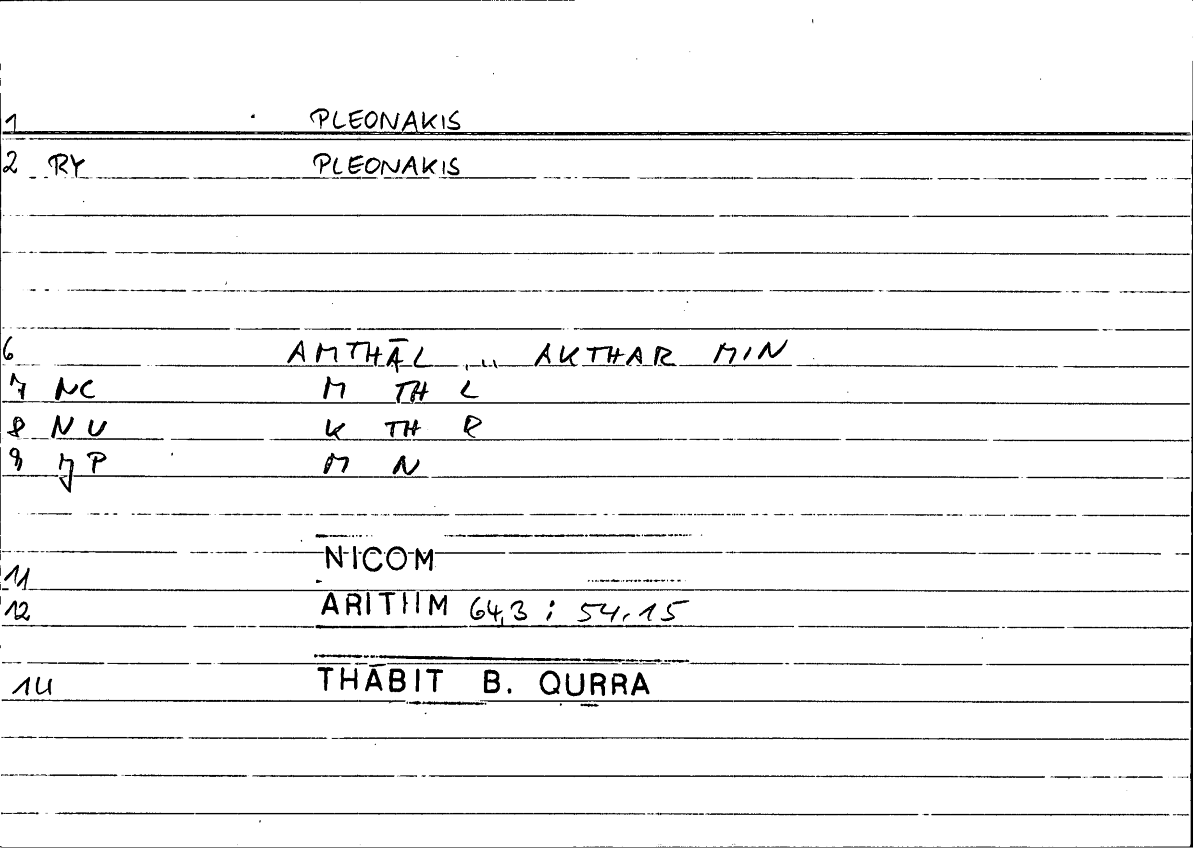 1 PLEONAKIS
2 RY PLEONAKIS
6 AMTHĀL ,, AKTHAR MIN
7 NC M TH L
8 NU K TH R
9 JP M N
NICOM
11
12 ARITHM 64,3 ; 54,15
14 THĀBIT B. QURRA